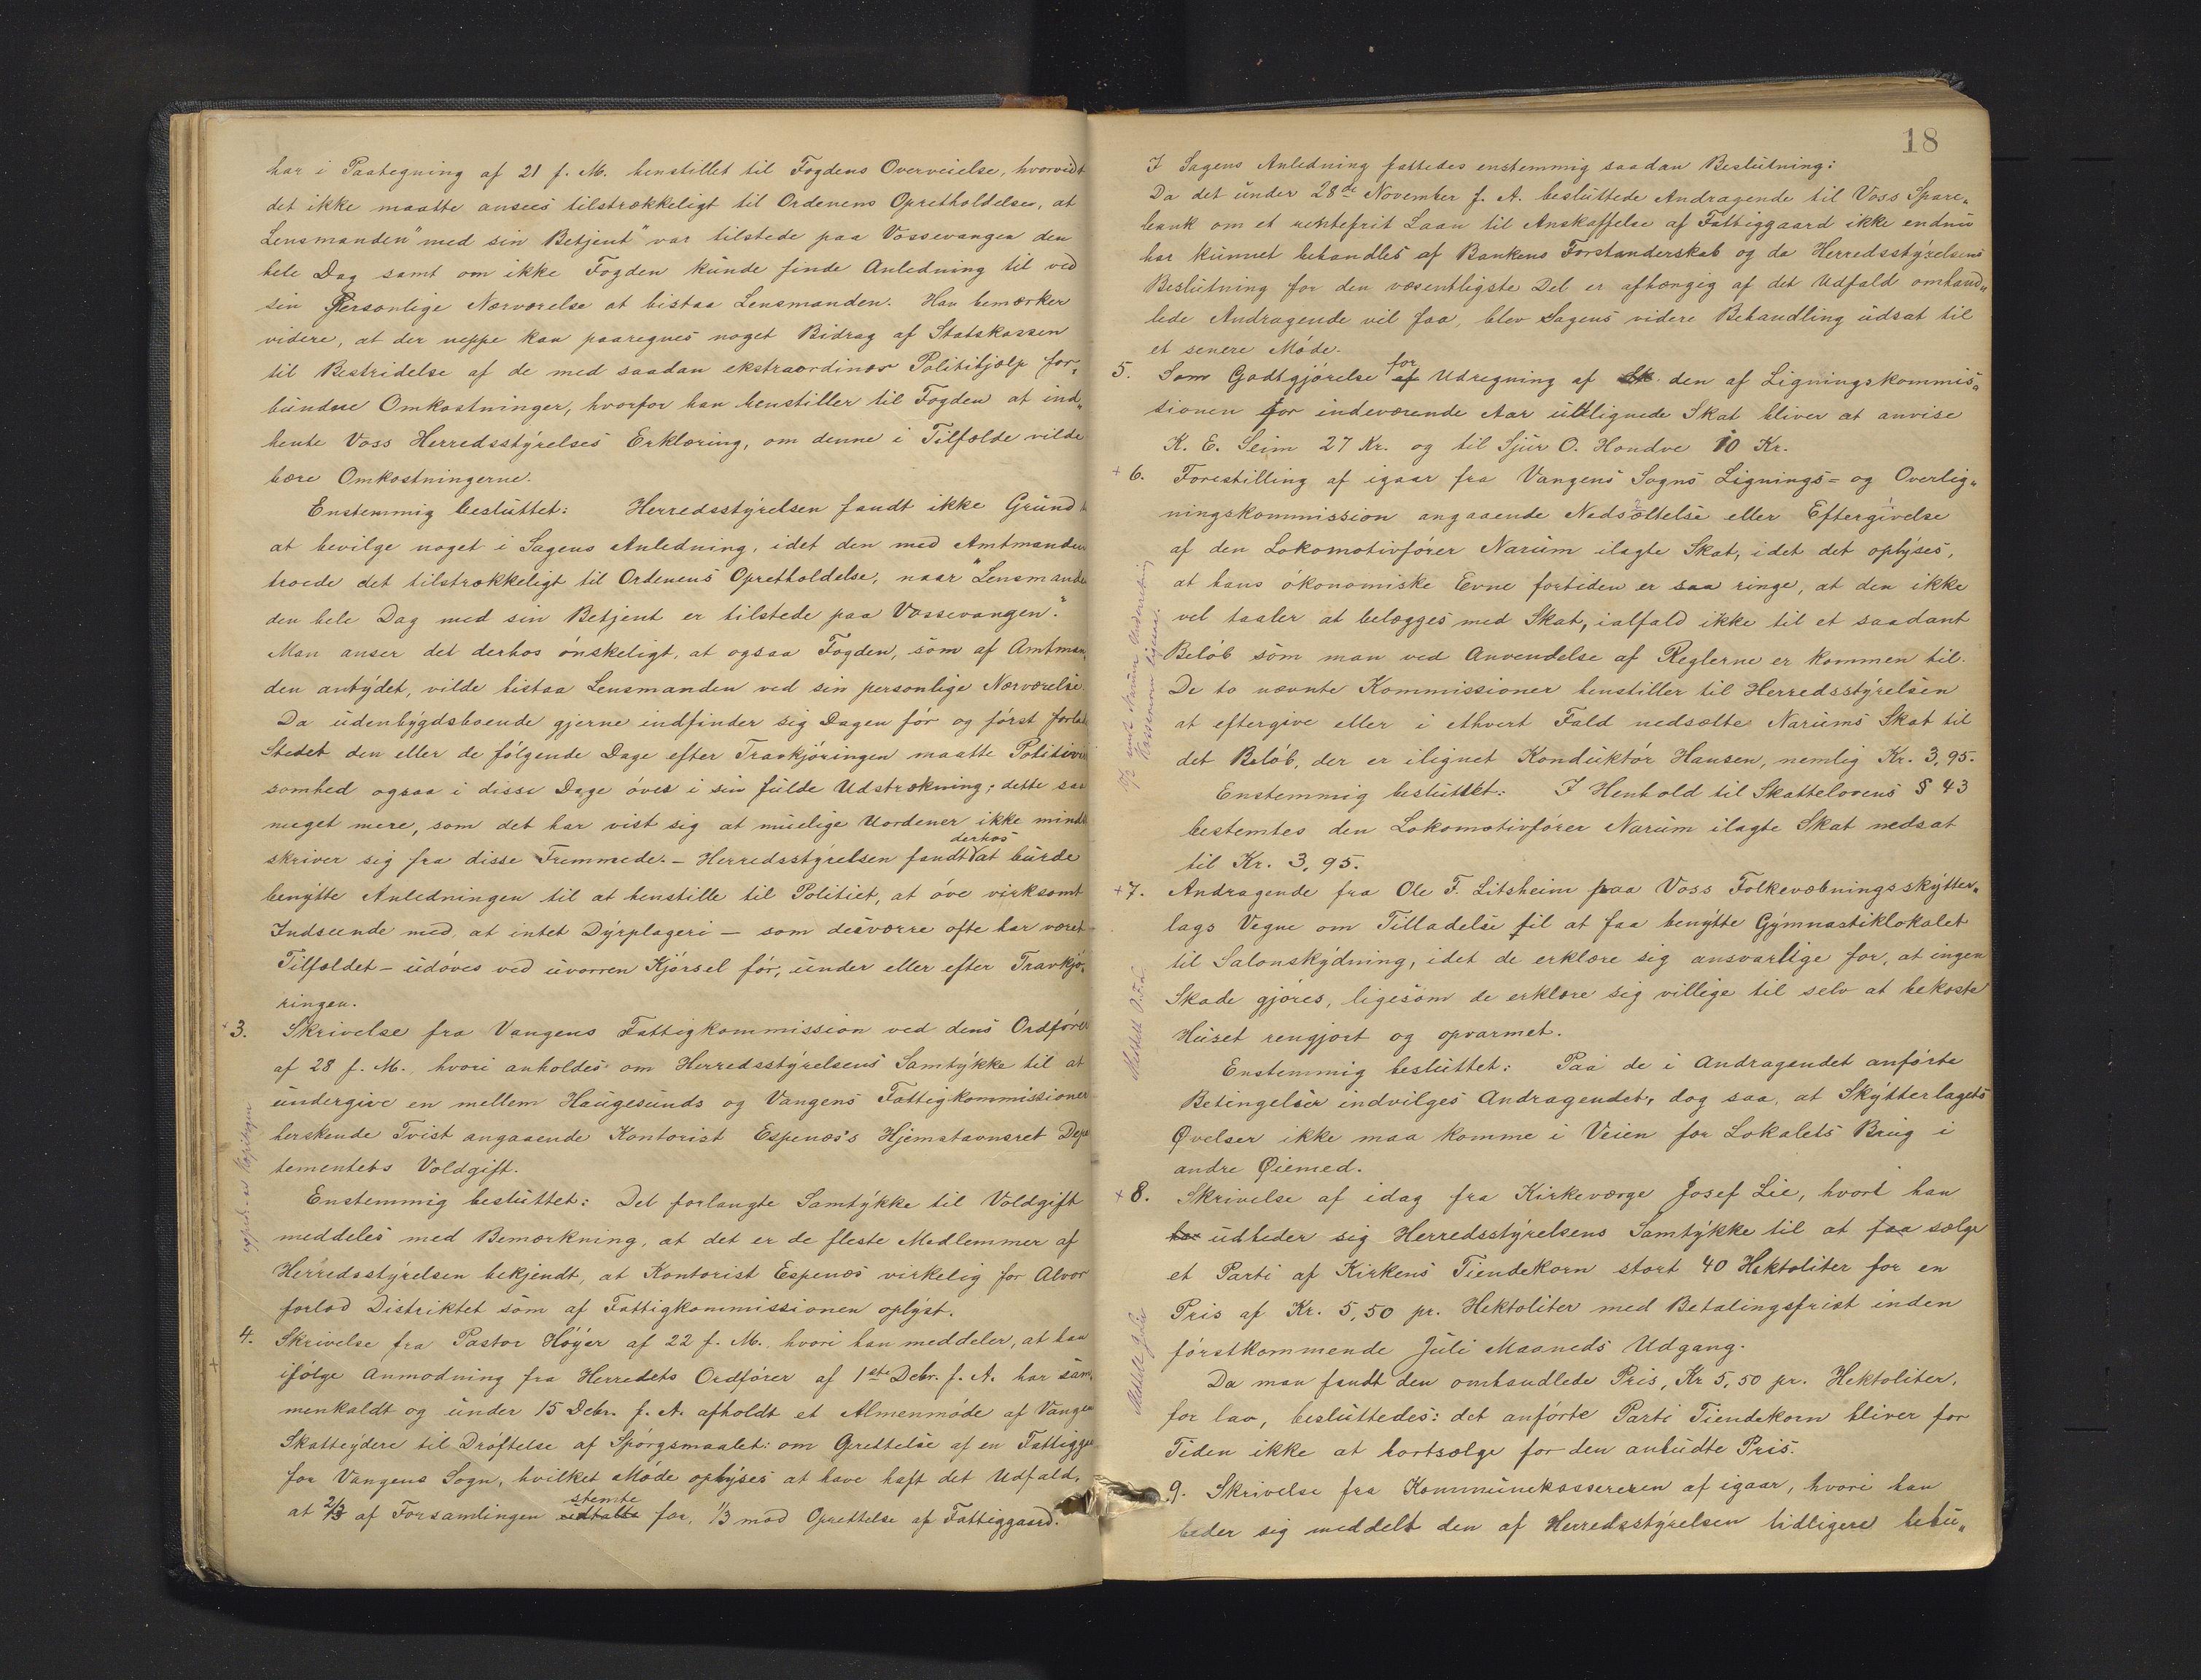 har i Paategning af 21 f. M. henstillet til Fogdens Overveielse, hvorvidt
det ikke maatte ansees tilstrækkeligt til Ordenens Opretholdelse, at
Lensmanden "med sin Betjent" var tilstede paa Vossevangen den
hele Dag samt om ikke Fogden kunde finde Anledning til ved
sin personlige Nærværelse at bistaa Lensmanden. Han bemærker
videre, at der neppe kan paaregnes noget Bidrag af Statskassen
til Bestridelse af de med saadan ekstraordinær Politihjælp for„
bundne Omkostninger, hvorfor han henstiller til Fogden at ind„
hente Voss Herredsstyrelses Erklæring, om denne i Tilfælde vilde
bære Omkostningerne.
Enstemmig besluttet: Herredsstyrelsen fandt ikke Grund
at bevilge noget i Sagens Anledning, idet den med Amtmanden
troede det tilstrækkeligt til Ordenens Opretholdelse, naar "Lensmanden
den hele Dag med sin Betjent er tilstede paa Vossevangen."
Man anser det derhos ønskeligt, at ogsaa Fogden, som af Amtman„
den antydet, vilde bistaa Lensmanden ved sin personlige Nærværelse.
Da udenbygdsboende gjerne indfinder sig Dagen før og først forlade
Stedet den eller de følgende Dage efter Travkjøringen maatte Politivirk
somhed ogsaa i disse Dage øves i sin fulde Udstrækning; dette saa
meget mere, som det har vist sig at muelige Uordener ikke mindst
skriver sig fra disse Fremmede. – Herredsstyrelsen fandt derhos at burde
benytte Anledningen til at henstille til Politiet, at øve virksomt
Indseende med, at intet Dyrplageri – som desværre ofte har været
Tilfældet – udøves ved uvorren Kjørsel før, under eller efter Travkjø„
ringen.
3. Skrivelse fra Vangens Fattigkommission ved dens Ordfører
af 28 f. M., hvori anholdes om Herredsstyrelsens Samtykke til at
undergive en mellem Haugesunds og Vangens Fattigkommissioner
herskende Tvist angaaende Kontorist Espenæs's Hjemstavnsret Depar
tementets Voldgift.
Enstemmig besluttet: Det forlangte Samtykke til Voldgift
meddeles med Bemærkning, at det er de fleste Medlemmer af
Herredsstyrelsen bekjendt, at Kontorist Espenæs virkelig for Alvor
forlod Distriktet som af Fattigkommissionen oplyst.
4. Skrivelse fra Pastor Høyer af 22 f. M., hvori han meddeler, at han
ifølge Anmodning fra Herredets Ordfører af 1ste Debr. f. A. har sam„
menkaldt og under 15 Debr. f. A. afholdt et Almenmøde af Vangens
Skatteydere til Drøftelse af Spørgsmaalet: om Oprettelse af en Fattiggaard
for Vangens Sogn, hvilket Møde oplyses at have haft det Udfald,
at 2/3 af Forsamlingen udtalte stemte for, 1/3 mod Oprettelse af Fattiggaard.
18
I Sagens Anledning fattedes enstemmig saadan Beslutning:
Da det under 28de November f. A. besluttede Andragende til Voss Spare„
bank om et rentefrit Laan til Anskaffelse af Fattiggaard ikke endnu
har kunnet behandles af Bankens Forstanderskab og da Herredsstyrelsens
Beslutning for den væsentligste Del er afhængig af det Udfald omhand„
lede Andragende vil faa, blev Sagens videre Behandling udsat til
et senere Møde.
5. Som Godtgjørelse af for Udregning af den af Ligningskommis„
sionen for indeværende Aar utlignede Skat bliver at anvise
K. E. Seim 27 Kr. og til Sjur O. Hondve 10 Kr.
+ 6. Forestilling af igaar fra Vangens Sogns Lignings= og Overlig„
ningskommission angaaende Nedsættelse eller Eftergivelse
af den Lokomotivfører Narum ilagte Skat, idet det oplyses,
at hans økonomiske Evne fortiden er saa ringe, at den ikke
vel taaler at belægges med Skat, ialfald ikke til et saadant
Beløb som man ved Anvendelse af Reglerne er kommen til.
De to nævnte Kommissioner henstiller til Herredsstyrelsen
at eftergive eller i ethvert Fald nedsætte Narums Skat til
det Beløb, der er ilignet Konduktør Hansen, nemlig Kr. 3,95.
Enstemmig besluttet: I Henhold til Skattelovens § 43
bestemtes den Lokomotivfører Narum ilagte Skat nedsat
til Kr. 3,95.
+ 7. Andragende fra Ole T. Litsheim paa Voss Folkevæbningsskytter„
lags Vegne om Tilladelse til at faa benytte Gymnastiklokalet
til Salonskydning, idet de erklære sig ansvarlige for, at ingen
Skade gjøres, ligesom de erklære sig villige til selv at bekoste
Huset rengjort og opvarmet.
Enstemmig besluttet: Paa de i Andragendet anførte
Betingelser indvilges Andragendet, dog saa, at Skytterlagets
Øvelser ikke maa komme i Veien for Lokalets Brug i
andre Øiemed.
+ 8. Skrivelse af idag fra Kirkeværge Josef Lie, hvori han
har udbeder sig Herredsstyrelsens Samtykke til at faa sælge
et Parti af Kirkens Tiendekorn stort 40 Hektoliter for en
Pris af Kr. 5,50 pr. Hektoliter med Betalingsfrist inden
førstkommende Juli Maaneds Udgang.
Da man fandt den omhandlede Pris, Kr 5,50 pr. Hektoliter,
for lav, besluttedes: det anførte Parti Tiendekorn bliver for
Tiden ikke at bortsælge for den anbudte Pris.
9. Skrivelse fra Kommunekassereren af igaar, hvori han
beder sig meddelt den af Herredsstyrelsen tidligere bebu„